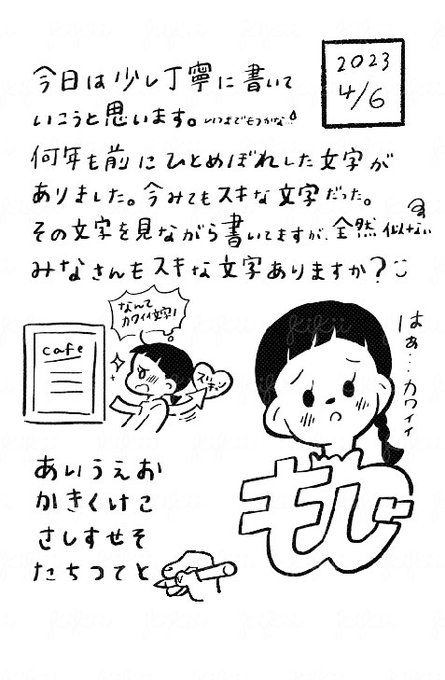 2023
4/6
今日は少し丁寧に書いて
いこうと思います。いつまでもつかな…
何年も前にひとめぼれした文字が
ありました。今みてもスキな文字だった。
その文字を見ながら書いてますが、全然似ない
みなさんもスキな文字ありますか?
なんて
カワイイ文字!
cafe
ズッキュン
はぁ…カワイイ
もじ
あいうえお
かきくけこ
さしすせそ
たちつてと